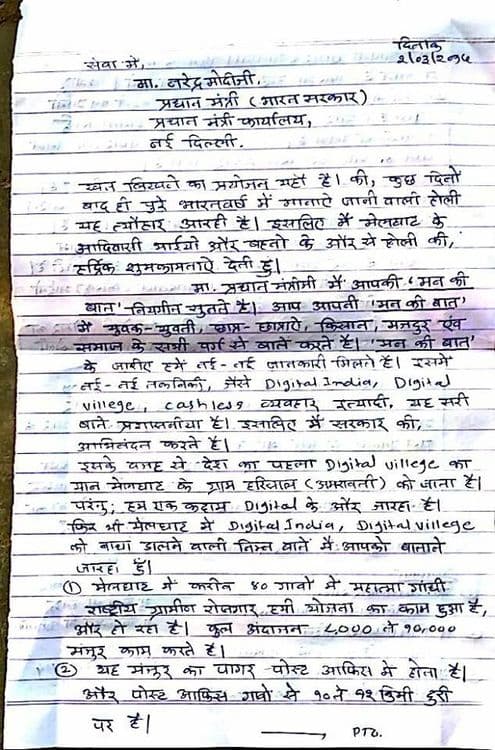 दिनांक
सेवा में, २/०३/२०१८
मा. नरेंद्र मोदीजी.
प्रधान मंत्री (भारत सरकार)
प्रधान मंत्री कार्यालय,
नई दिल्ली.
खत लिखते का प्रयोजन यहाँ है। की, कुछ दिनो
बाद ही पुरे भारतवर्ष में मानाऐ जानी वाली होली
यह त्यौहार आरही है। इसलिए मैं मेलघाट के
आदिवासी भाईयों और बहनो के और से होली की,
हर्दिक शुभकामनाऐ देती हुं।
मा. प्रधान मंत्रीमी में आपकी 'मन की
बात' नियमीन सुनते है। आप आपनी 'मन की बात'
में युवक-युवती, छात्र-छात्राऐ, किसान, मजदुर एंव
समाज के सभी वर्ग से बाते करते है। 'मन की बात'
के जरीए हमें नई-नई जानकारी मिलते है। इसमे
नई-नई तकनिकी, जैसे Digital India, Digital
villege, cashless व्यवहार इत्यादी, यह सारी
बाते प्रशासनीया है। इसलिए में सरकार की,
अभिनंदन करते है।
इसके वजह से देश का पहला Digital villege का
मान मेलघाट के ग्राम हरिसाल (अमरावती) को जाना है।
परंतु; हम एक कदाम Digital के और जारहा है।
फिर भी मेलघाट में Digital India, Digital villege
को बाधा डालने वाली निम्न बाते मैं आपको बाताने
जारहा हुँ।
① मेलघाट में करीब ४० गावो में महात्मा गांधी
राष्ट्रीय ग्रामीण रोजगार हमी योजना का काम हुआ है,
और हो रहा है। कुल अंदाजन ८,००० ते १०,०००
मंजुर काम करते है।
② यह मंजुर का पागर पोस्ट आफिस में होता है।
और पोस्ट आफिस गावो से १० ते १२ किमी दुरी
पर है।
PTO.